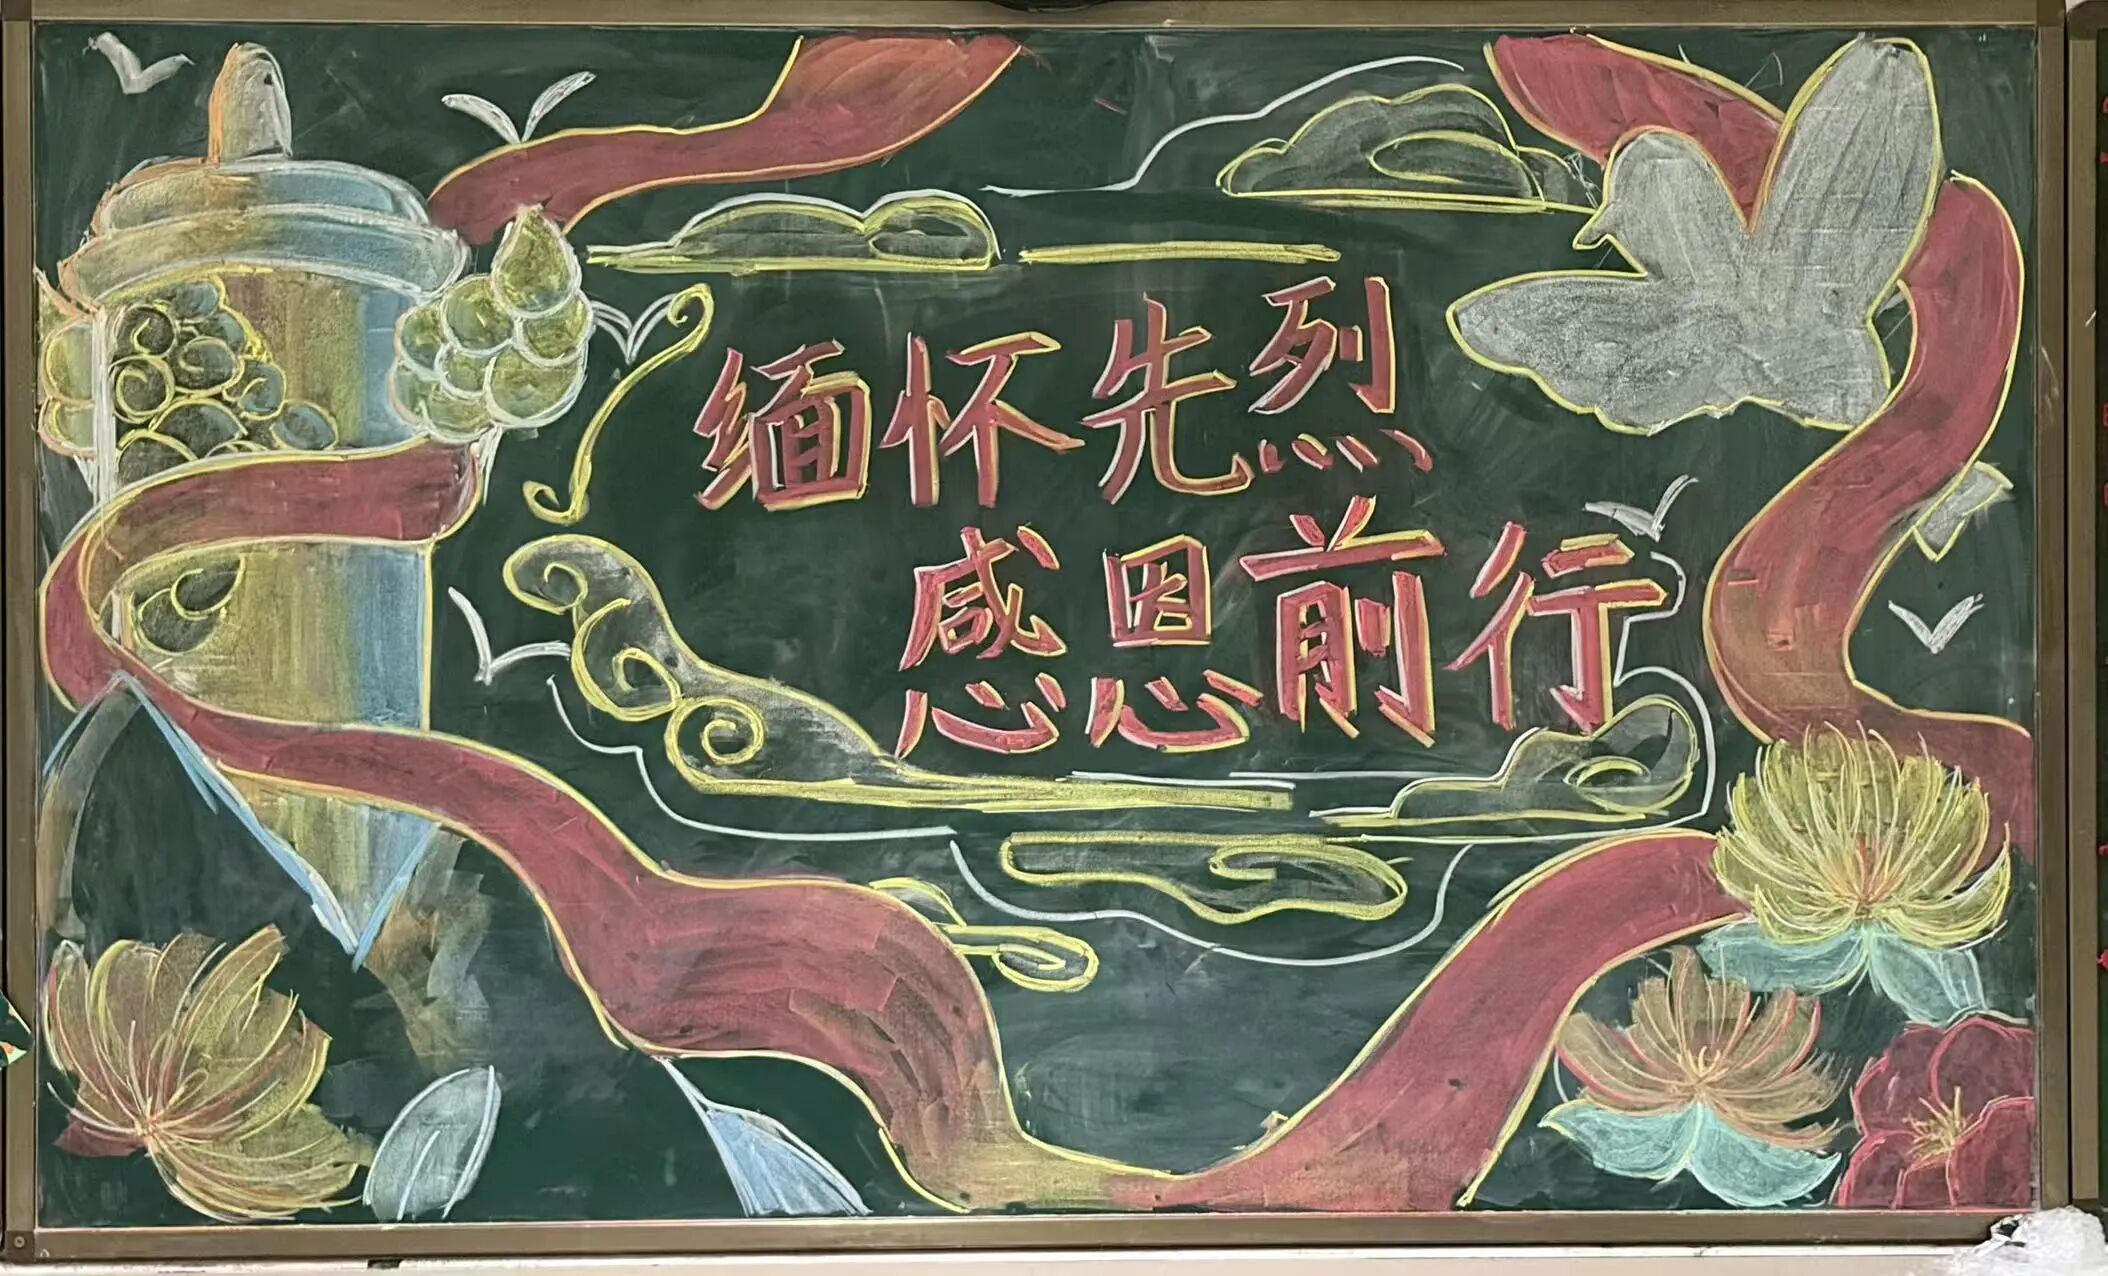 缅怀先烈
感恩前行